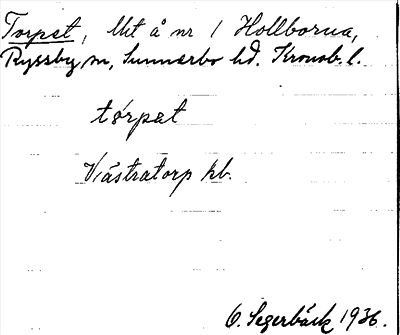 Torpet, Ut å nr 1 Hollborna,
Ryssby sn, Sunnerbo hd. Kronob. l.
tórpet
Västratorp kb.
O. Segerbäck 1936.